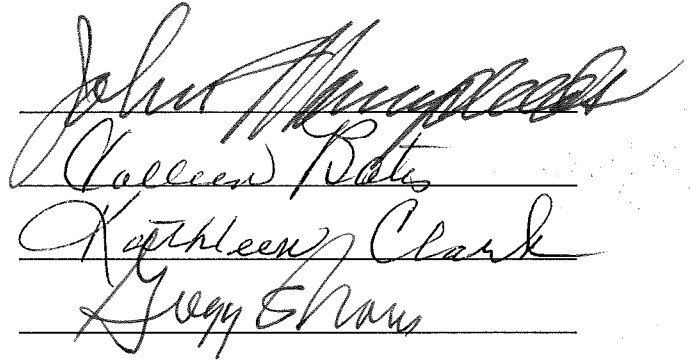 John
Colleen Bates
Kathleen Clark
Gregg